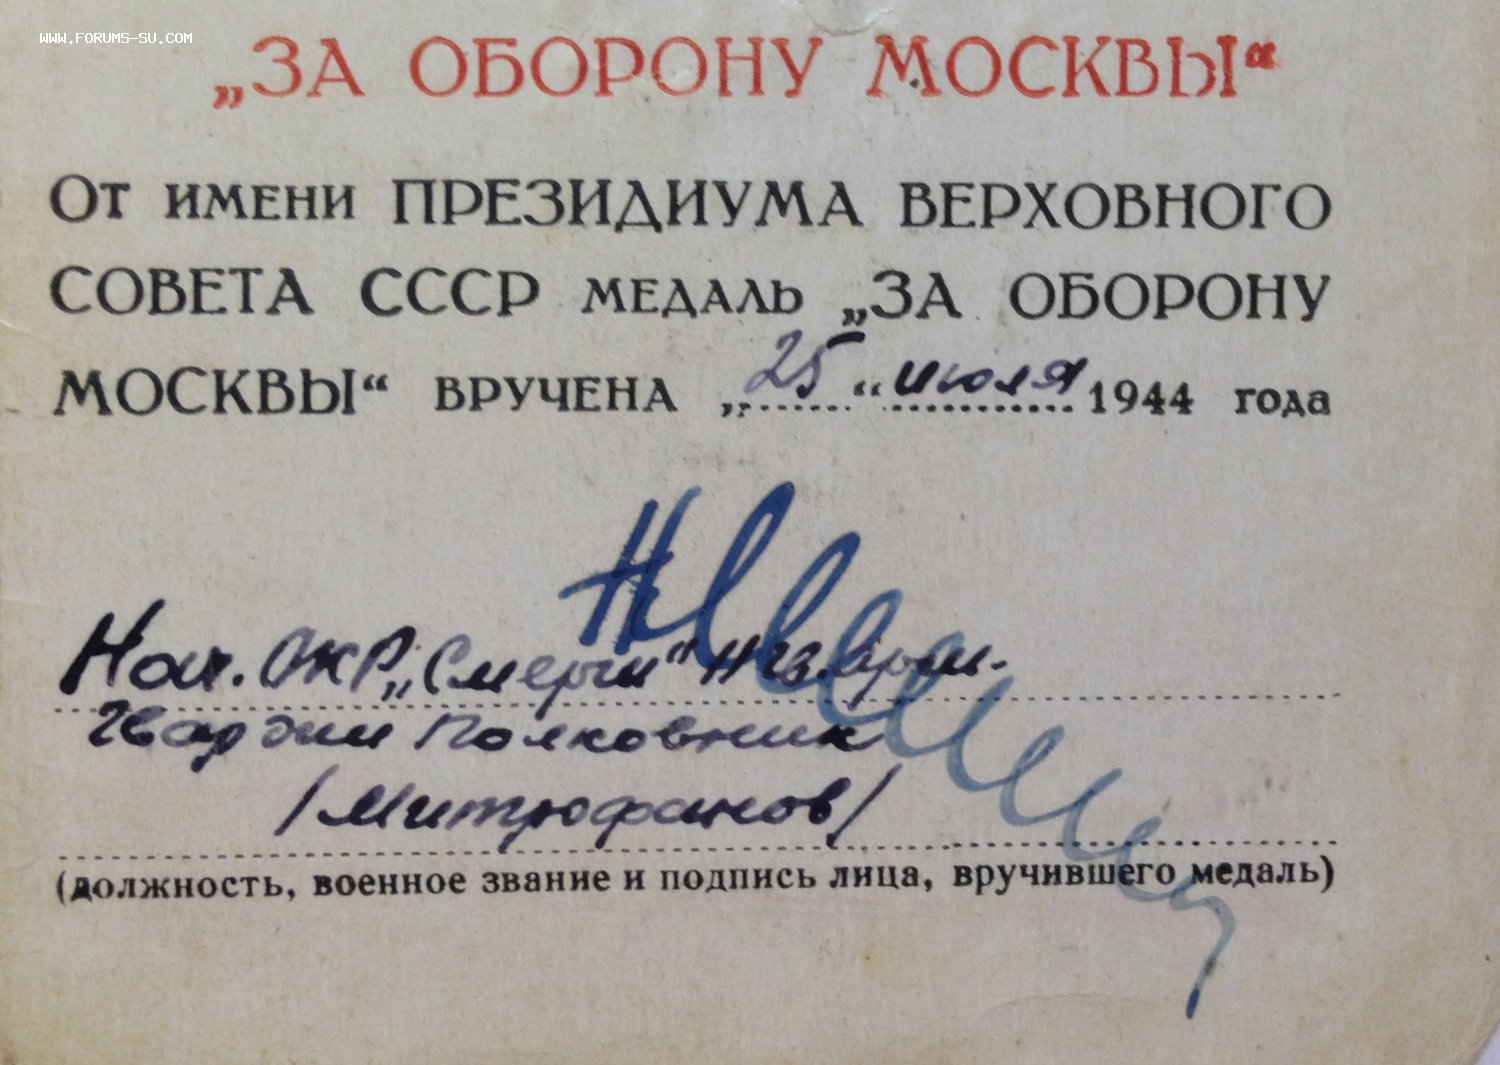 WWW.FORUMS-SU.COM
„ЗА ОБОРОНУ МОСКВЫ“
От имени ПРЕЗИДИУМА ВЕРХОВНОГО
СОВЕТА СССР медаль „ЗА ОБОРОНУ
МОСКВЫ“ вручена „25“ июля 1944 года
Нач. ОКР „Смерш“
Гвардии Полковник
/Митрофанов/
(должность, военное звание и подпись лица, вручившего медаль)